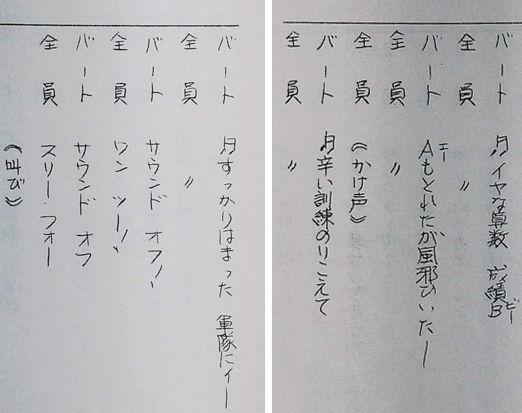 バート ♪イヤな算数 成績B ビー
全員 〃
バート Aもとれたが風邪ひいたー エー
全員 〃
全員 《かけ声》
バート ♪辛い訓練のりこえて
全員 〃
バート ♪すっかりはまった 軍隊にィー
全員 〃
バート サウンド オフ!!
全員 ワン ツー!!
バート サウンド オフ
全員 スリー・フォー
《叫び》